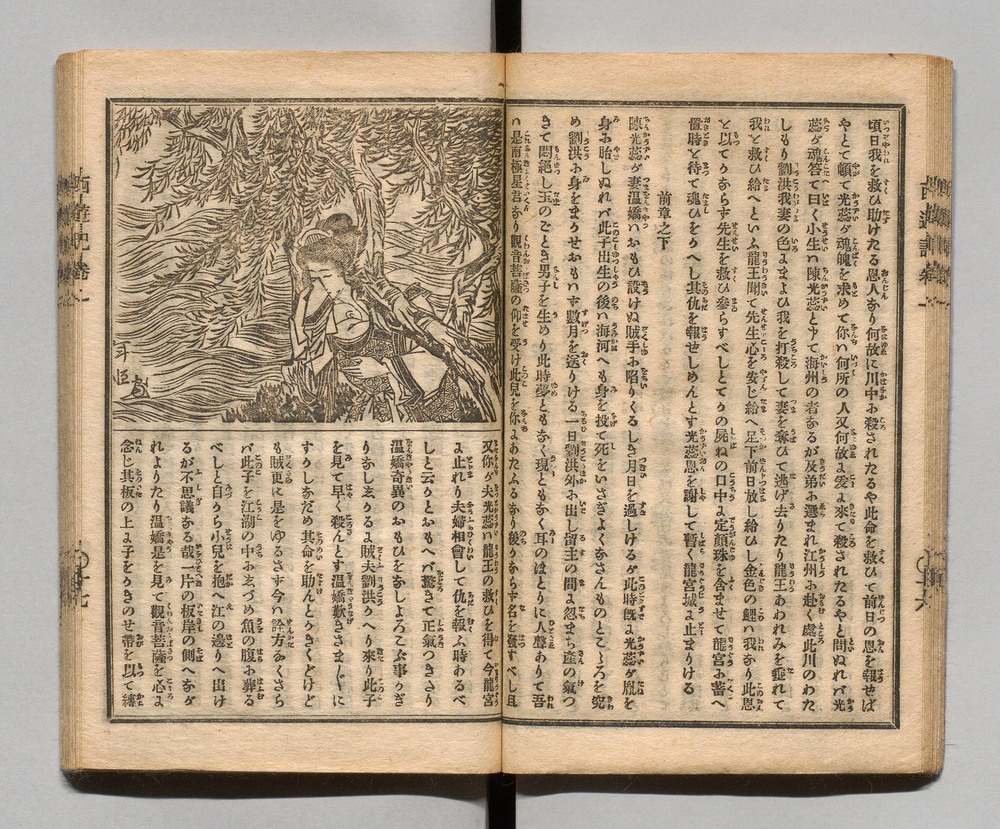 頃日我を救ひ助けたる恩人なり何故に川中に殺されたるや此命を救ひて前日の恩を報せば
やとて頓て光蕊が魂魄を求めて你ハ何所の人又何故に爰に來て殺されたるやと問ぬれバ光
蕊が魂答て曰く小生ハ陳光蕊とて海州の者なるが及第に選まれ江州に赴く處此川のわた
しもり劉洪我妻の色によまひ我を打殺して妻を奪ひて逃げ去りたり龍王あわれみを垂れて
我を救ひ給へといふ龍王聞て先生心を安じ給へ足下前日放し給ひし金色の鯉ハ我なり此恩
を以てかならず先生を救ひ參らすべしとてかの屍ねの口中に定顔珠を含ませて龍宮に蓄へ
置時を待て魂ひをかへし其仇を報せしめんとす光蕊恩を謝して暫く龍宮城に止まりける
前章之下
陳光蕊が妻温嬌ハおもひ設けぬ賊手に陷りくるしき月日を過しけるが此時既に光蕊が胤を
身に胎しぬれバ此子出生の後ハ海河へも身を投て死をいさぎよくなさんものとこゝろを究
め劉洪に身をまかせおもハず數月を送りける一日劉洪外に出し留主の間に忽まち産の氣つ
きて悶絶し玉のごとき男子を生めり此時夢ともなく現ともなく耳のほとりに人聲ありて吾
ハ是南極星君なり觀音菩薩の仰を受け此兒を你にあたふるなり後かならず名を發すべし且
又你が夫光蕊ハ龍王の救ひを得て今龍宮
に止れり夫婦相會して仇を報ふ時あるべ
しと云かとおもへバ驚きて正氣つきたり
温嬌奇異のおもひをなしよろこぶ事かぎ
りなししかるに賊夫劉洪かへり來り此子
を見て早く殺んとす温嬌歎きさま〴〵に
すかしなだめ其命を助んとかきくどけど
も賊更に是をゆるさず今ハ詮方なくさら
バ此子を江湖の中にしづめ魚の腹に葬る
べしと自から小兒を抱へ江の邊りへ出け
るが不思議なる哉一片の板岸の側へなが
れよりたり温嬌是を見て觀音菩薩を心に
念じ其板の上に子をかきのせ帶を以て縛
年恒画
西遊記卷一